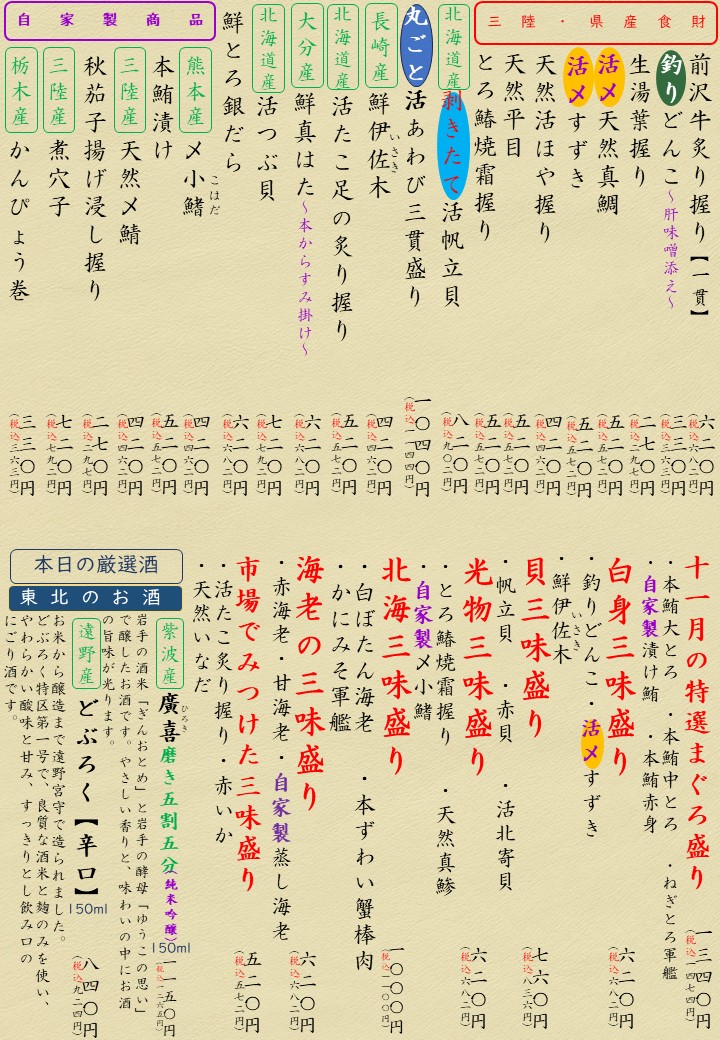 三陸・県産食財
前沢牛炙り握り【一貫】
六二〇円
(税込六八二円)
釣りどんこ~肝味噌添え~
三三〇円
(税込三六三円)
生湯葉握り
二七〇円
(税込二九七円)
活〆天然真鯛
五二〇円
(税込五七二円)
活〆すずき
五二〇円
(税込五七二円)
天然活ほや握り
四二〇円
(税込四六二円)
天然平目
五二〇円
(税込五七二円)
とろ鰆焼霜握り
五二〇円
(税込五七二円)
北海道産
剥きたて活帆立貝
八二〇円
(税込九〇二円)
丸ごと活あわび三貫盛り
一〇四〇円
(税込一一四四円)
長崎産
鮮伊佐木
いさき
四二〇円
(税込四六二円)
北海道産
活たこ足の炙り握り
五二〇円
(税込五七二円)
大分産
鮮真はた~本からすみ掛け~
六二〇円
(税込六八二円)
北海道産
活つぶ貝
七二〇円
(税込七九二円)
鮮とろ銀だら
六二〇円
(税込六八二円)
自家製商品
熊本産
〆小鰭
こはだ
四二〇円
(税込四六二円)
本鮪漬け
五二〇円
(税込五七二円)
三陸産
天然〆鯖
四二〇円
(税込四六二円)
秋茄子揚げ浸し握り
二七〇円
(税込二九七円)
三陸産
煮穴子
七二〇円
(税込七九二円)
栃木産
かんぴょう巻
三三〇円
(税込三六三円)
十一月の特選まぐろ盛り
一三四〇円
(税込一四七四円)
・本鮪大とろ ・本鮪中とろ ・ねぎとろ軍艦
・自家製漬け鮪 ・本鮪赤身
白身三昧盛り
六二〇円
(税込六八二円)
・釣りどんこ・活〆すずき
・鮮伊佐木
いさき
貝三昧盛り
七六〇円
(税込八三六円)
・帆立貝 ・赤貝 ・活北寄貝
光物三昧盛り
六二〇円
(税込六八二円)
・とろ鰆焼霜握り ・天然真鯵
・自家製〆小鰭
北海三昧盛り
一〇〇〇円
(税込一一〇〇円)
・白ぼたん海老 ・本ずわい蟹棒肉
・かにみそ軍艦
海老の三昧盛り
六二〇円
(税込六八二円)
・赤海老・甘海老・自家製蒸し海老
市場でみつけた三昧盛り
五二〇円
(税込五七二円)
・活たこ炙り握り・赤いか
・天然いなだ
本日の厳選酒
東北のお酒
紫波産
廣喜磨き五割五分(純米吟醸)
ひろき
150ml
一一五〇円
(税込一二六五円)
岩手の酒米「ぎんおとめ」と岩手の酵母「ゆうこの思い」
で醸したお酒です。やさしい香りと、味わいの中にお酒
の旨味が光ります。
遠野産
どぶろく【辛口】
150ml
八四〇円
(税込九二四円)
お米から醸造まで遠野宮守で造られました。
どぶろく特区第一号で、良質な酒米と麹のみを使い、
やわらかい酸味と甘み、すっきりとし飲み口の
にごり酒です。